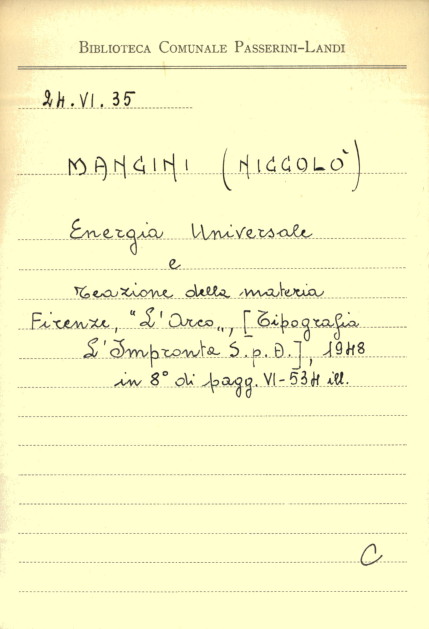 BIBLIOTECA COMUNALE PASSERINI-LANDI
24.VI.35
MANGINI (NICCOLÒ)
Energia Universale
e
reazione della materia
Firenze, "L'Arco„, [Tipografia
L'Impronta S.p.A.], 1948
in 8° di pagg. VI-534 ill.
C